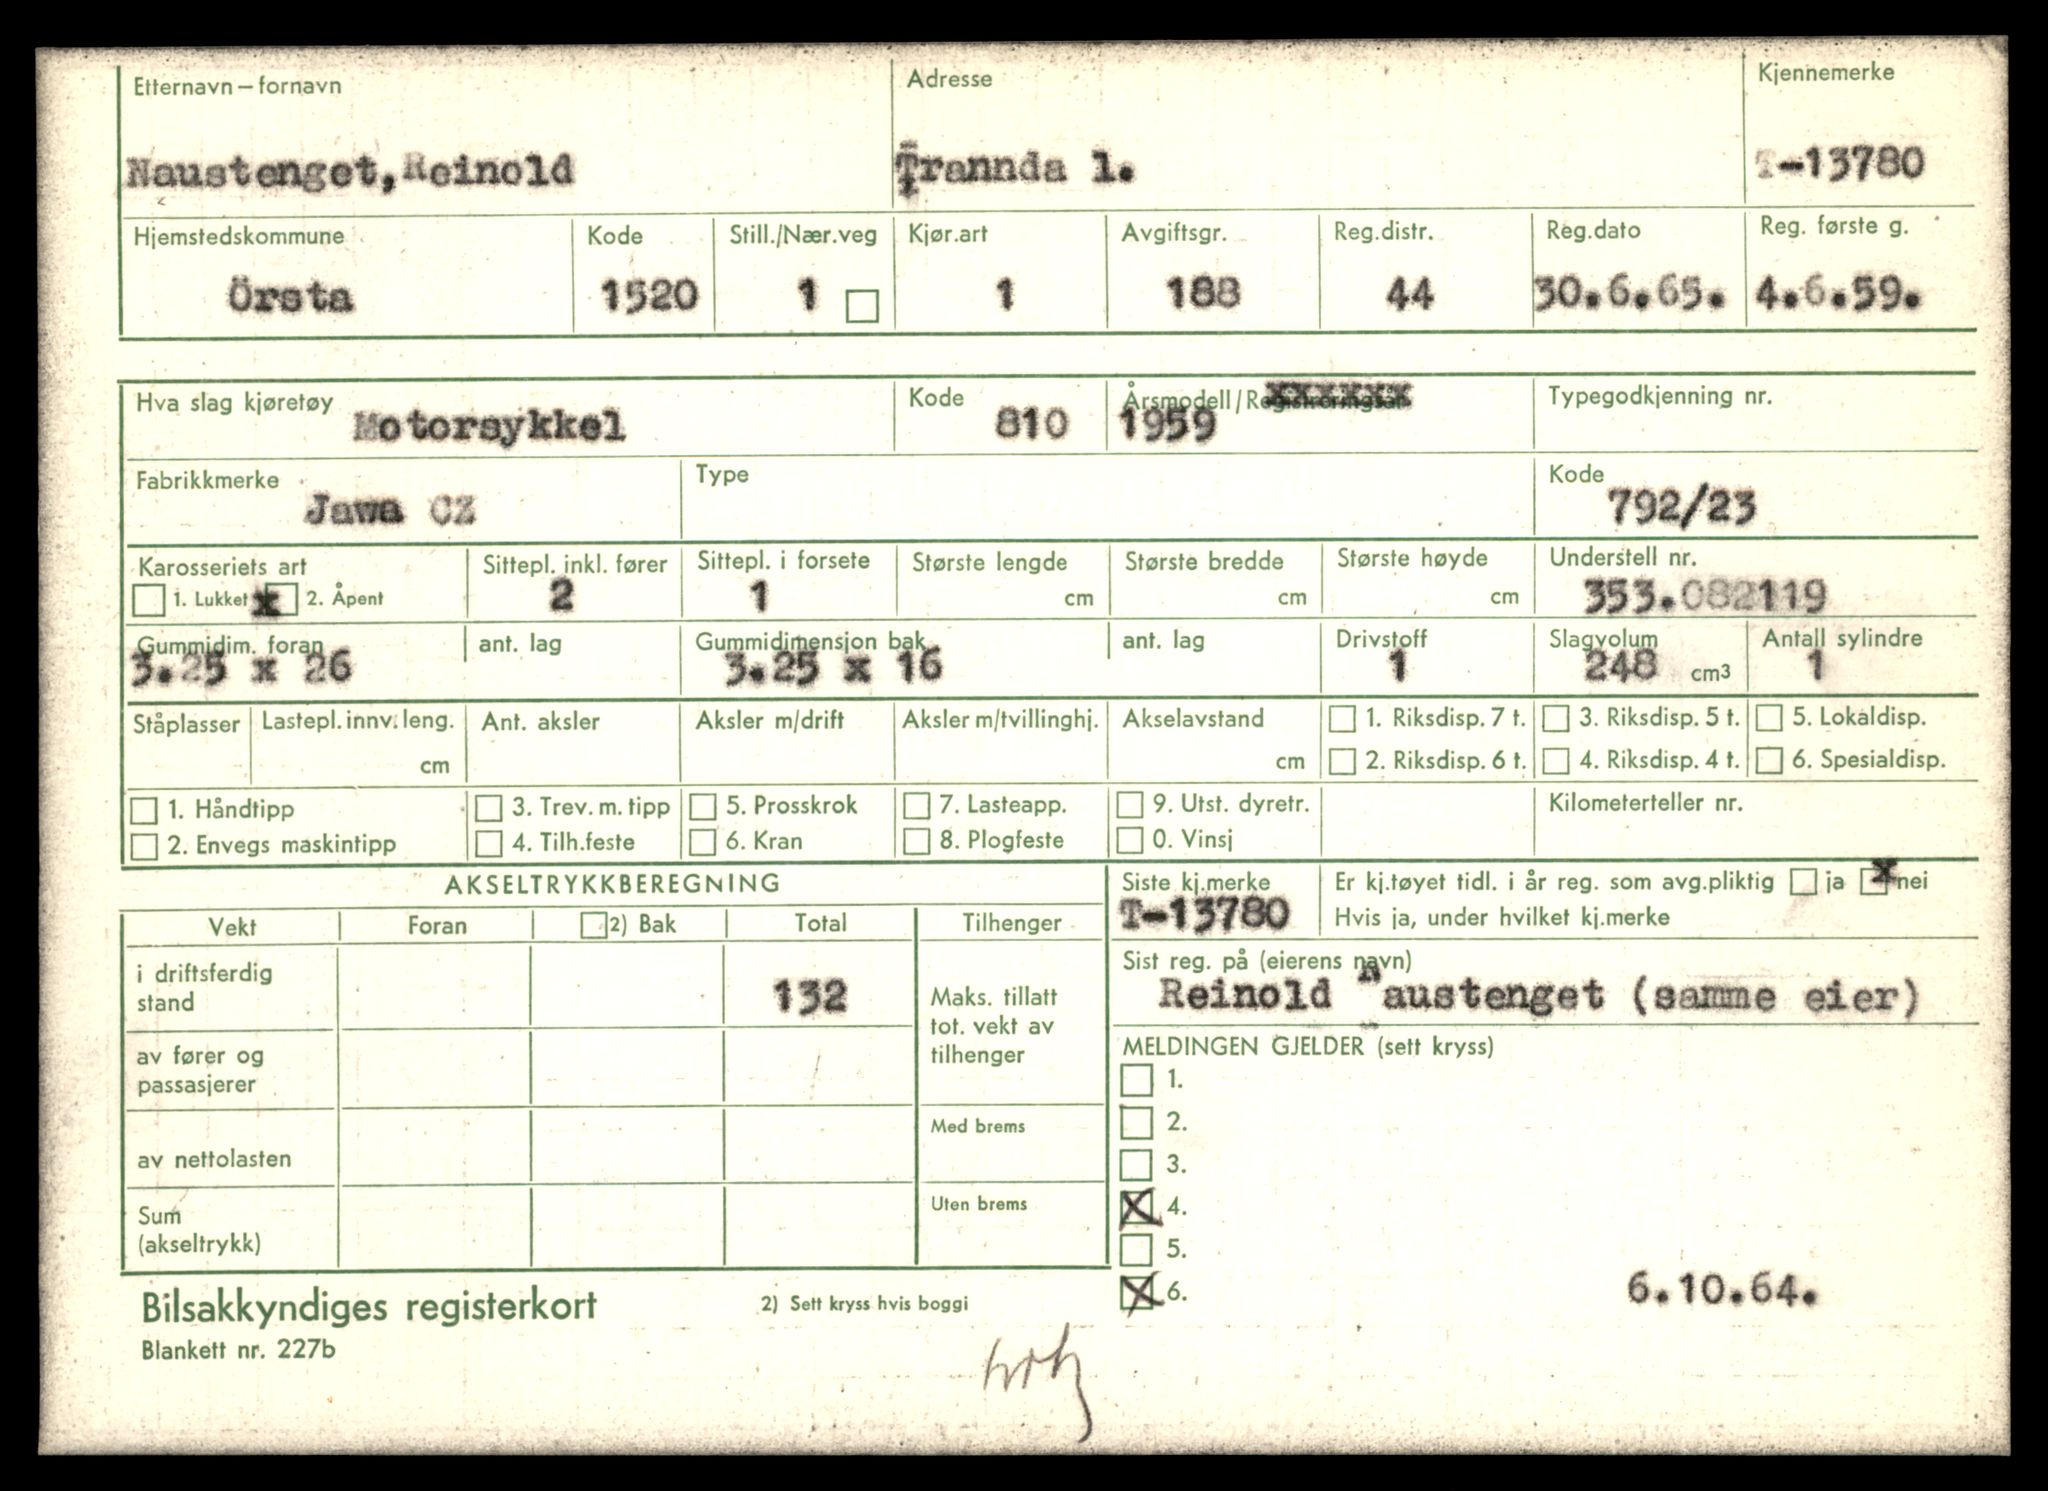 Etternavn – fornavn Adresse Kjennemerke
Naustenget,Reinold Trannda l. T-13780
Hjemstedskommune Kode Still./Nær.veg Kjør.art Avgiftsgr. Reg.distr. Reg.dato Reg. første g.
Örsta 1520 1 1 188 44 30.6.65. 4.6.59.
Hva slag kjøretøy Kode Årsmodell/Registreringsår Typegodkjenning nr.
Motorsykkel 810 1959
Fabrikkmerke Type Kode
Jawa CZ 792/23
Karosseriets art Sittepl. inkl. fører Sittepl. i forsete Største lengde Største bredde Største høyde Understell nr.
1. Lukket x 2. Åpent 2 1 cm cm cm 353.082119
Gummidim. foran ant. lag Gummidimensjon bak ant. lag Drivstoff Slagvolum Antall sylindre
3.25 x 26 3.25 x 16 1 248 cm3 1
Ståplasser Lastepl. innv. leng. Ant. aksler Aksler m/drift Aksler m/tvillinghj. Akselavstand 1. Riksdisp. 7 t. 3. Riksdisp. 5 t. 5. Lokaldisp.
cm cm 2. Riksdisp. 6 t. 4. Riksdisp. 4 t. 6. Spesialdisp.
1. Håndtipp 3. Trev. m. tipp 5. Prosskrok 7. Lasteapp. 9. Utst. dyretr. Kilometerteller nr.
2. Envegs maskintipp 4. Tilh.feste 6. Kran 8. Plogfeste 0. Vinsj
AKSELTRYKKBEREGNING
Vekt Foran 2) Bak Total Tilhenger
i driftsferdig
stand 132
Maks. tillatt
tot. vekt av
tilhenger
av fører og
passasjerer
Med brems
av nettolasten
Uten brems
Sum
(akseltrykk)
Siste kj.merke Er kj.tøyet tidl. i år reg. som avg.pliktig ja x nei
T-13780 Hvis ja, under hvilket kj.merke
Sist reg. på (eierens navn)
Reinold Naustenget (samme eier)
MELDINGEN GJELDER (sett kryss)
1.
2.
3.
X 4.
5.
X 6. 6.10.64.
Bilsakkyndiges registerkort 2) Sett kryss hvis boggi
Blankett nr. 227b